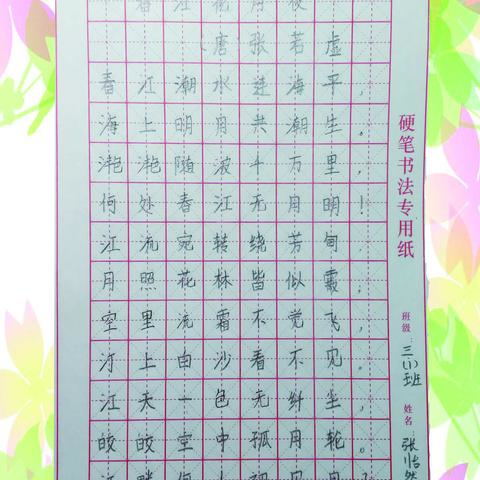 春江花月夜
(唐)张若虚
春江潮水连海平,
海上明月共潮生。
滟滟随波千万里,
何处春江无月明!
江流宛转绕芳甸,
月照花林皆似霰;
空里流霜不觉飞,
汀上白沙看不见。
江天一色无纤尘,
皎皎空中孤月轮。
江畔何人初见月?
硬笔书法专用纸
班级:三(1)班
姓名 张怡然